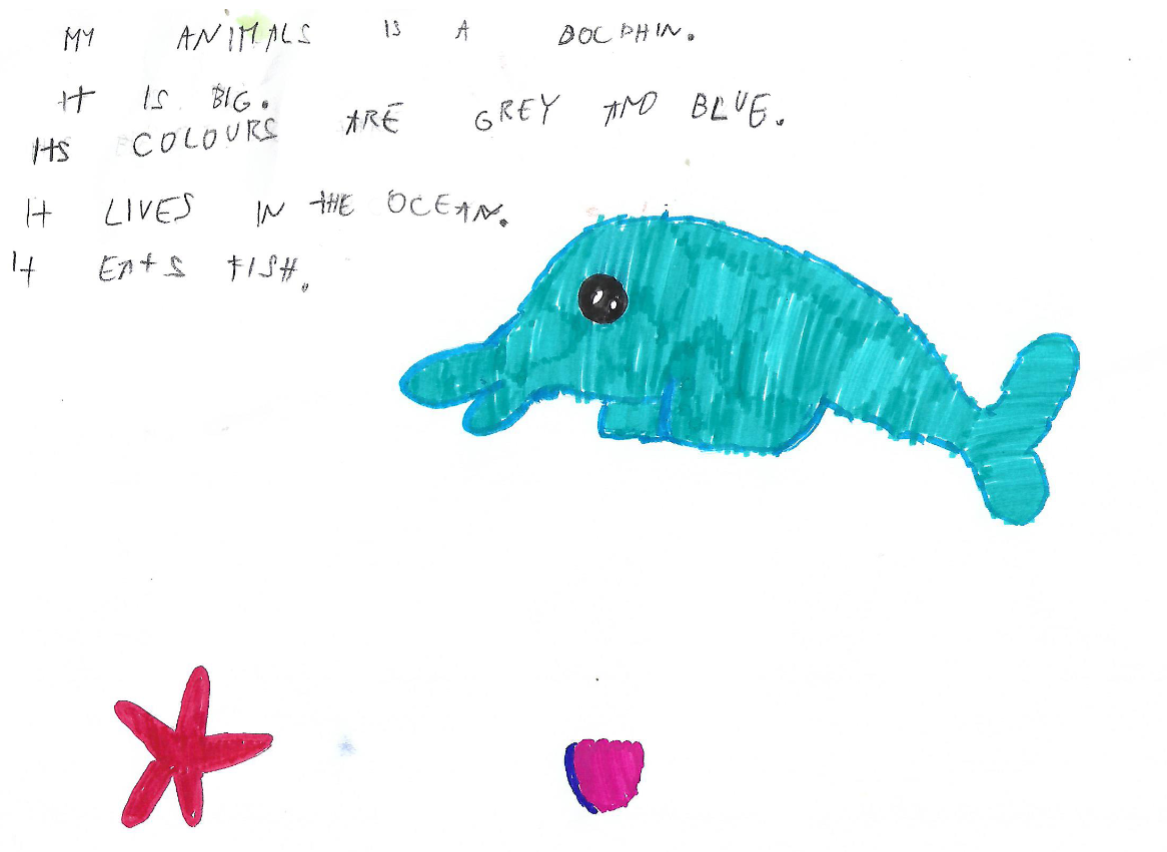 MY ANIMALS IS A DOLPHIN.
IT IS BIG.
ITS COLOURS ARE GREY AND BLUE.
IT LIVES IN THE OCEAN.
IT EATS FISH.